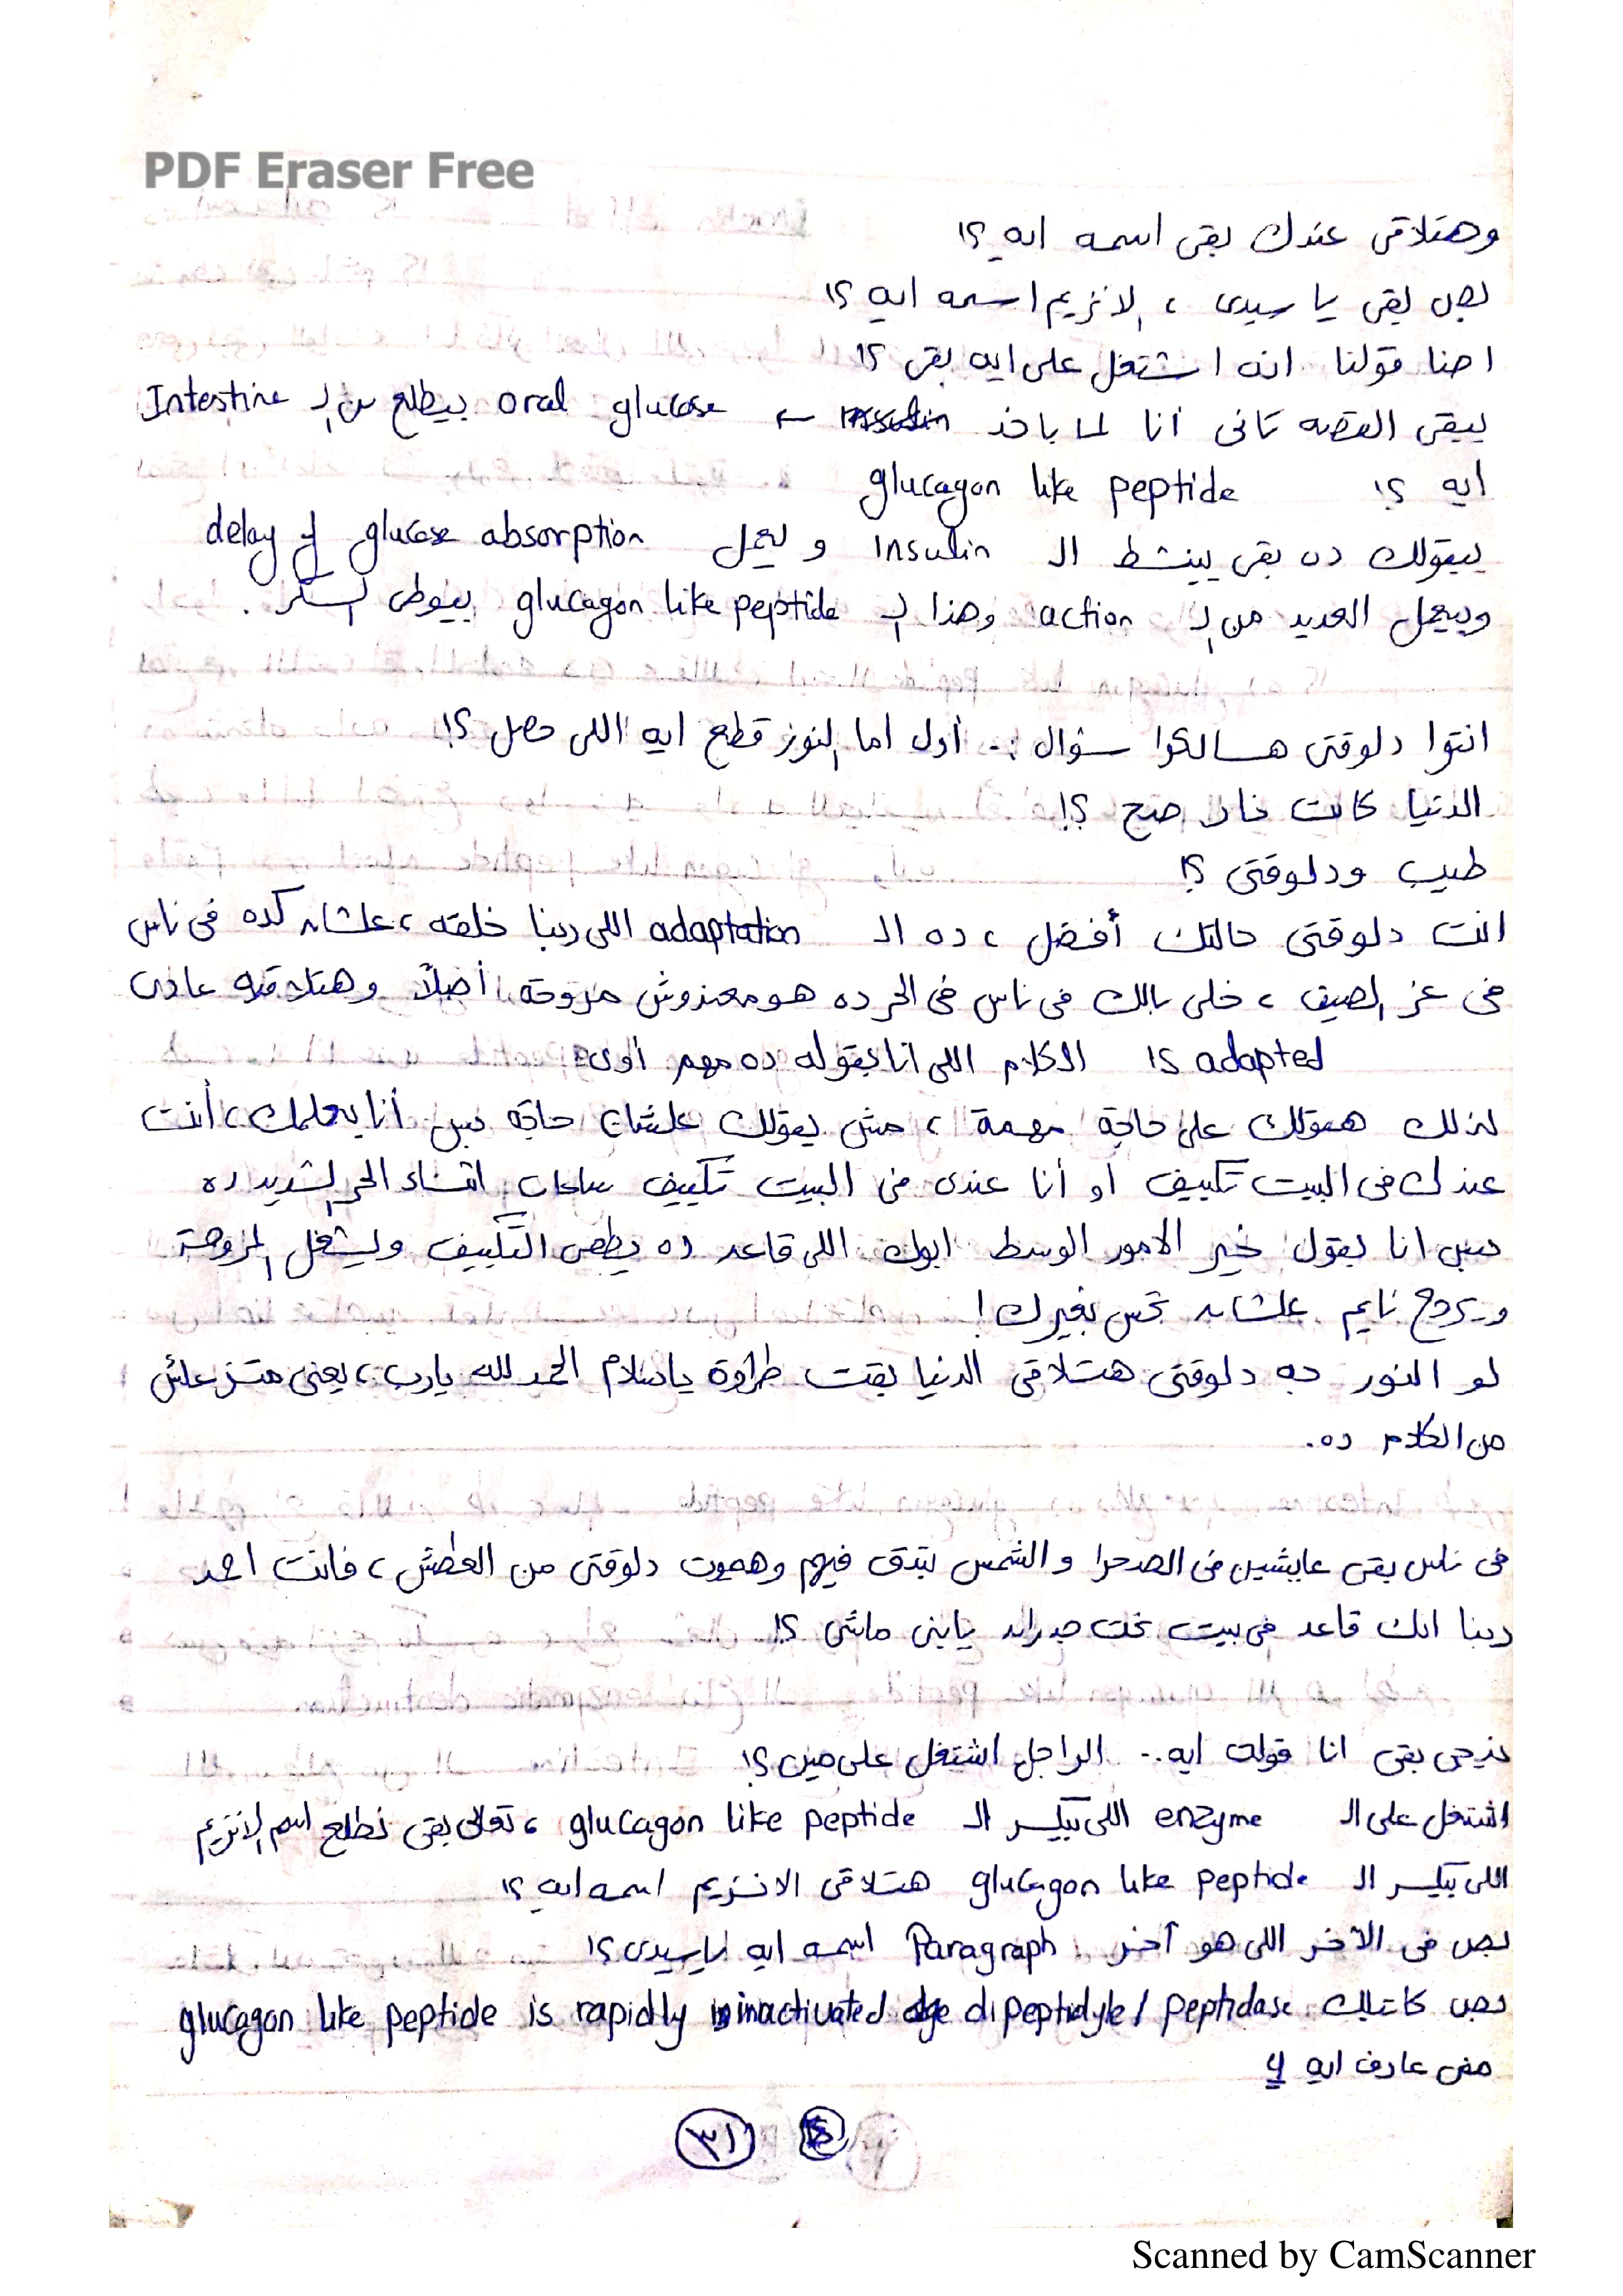 PDF Eraser Free
وهتلاقى عندك بقى اسمه ايه ؟!
بص بقى يا سيدى ، الانزيم اسمه ايه ؟!
احنا قولنا انه اشتغل على ايه بقى ؟!
يبقى القصه تانى أنا لما باخد insulin ← oral glucose بيطلع من الـ Intestine
ايه ؟! glucagon like peptide
بيقولك ده بقى بينشط الـ Insulin و بيعمل delay of glucose absorption
وبيعمل العديد من الـ action وهذا الـ glucagon like peptide بيوطى السكر .
انتوا دلوقتى هسالكوا سؤال :- أول اما النور قطع ايه اللى حصل ؟!
الدنيا كانت نار صح ؟!
طيب ودلوقتى ؟!
انت دلوقتى حالتك أفضل ، ده الـ adaptation اللى ربنا خلقه ، علشان كده فى ناس
فى عز الصيف ، خلى بالك فى ناس فى الحر ده هو معندوش مروحة أصلاً وهتلاقيه عادى
adapted ؟! الكلام اللى انا بقوله ده مهم أوى
لذلك هقولك على حاجة مهمة ، مش بقولك علشان حاجة بس أنا بعلمك ، أنت
عندك فى البيت تكييف او أنا عندى فى البيت تكييف ساعات اثناء الحر الشديد ده
بس انا بقول خير الامور الوسط ابوك اللى قاعد ده يطفى التكييف ويشغل المروحة
ويروح نايم علشان تحس بغيرك !
لو النور جه دلوقتى هتلاقى الدنيا بقت طراوة ياسلام الحمد لله يارب ، يعنى متزعلش
من الكلام ده .
فى ناس بقى عايشين فى الصحرا والشمس بتدق فيهم وهموت دلوقتى من العطش ، فانت احمد
ربنا انك قاعد فى بيت تحت جدران يابنى ماشى ؟!
نرجع بقى انا قولت ايه .. الراجل اشتغل على مين ؟!
اشتغل على الـ enzyme اللى بيكسر الـ glucagon like peptide ، تعالى بقى نطلع اسم الانزيم
اللى بيكسر الـ glucagon like peptide هتلاقى الانزيم اسمه ايه ؟!
بص فى الآخر اللى هو آخر Paragraph اسمه ايه ياسيدى ؟!
بص كاتبلك glucagon like peptide is rapidly inactivated dipeptidyle / peptidase
مش عارف ايه 4
٣١
Scanned by CamScanner